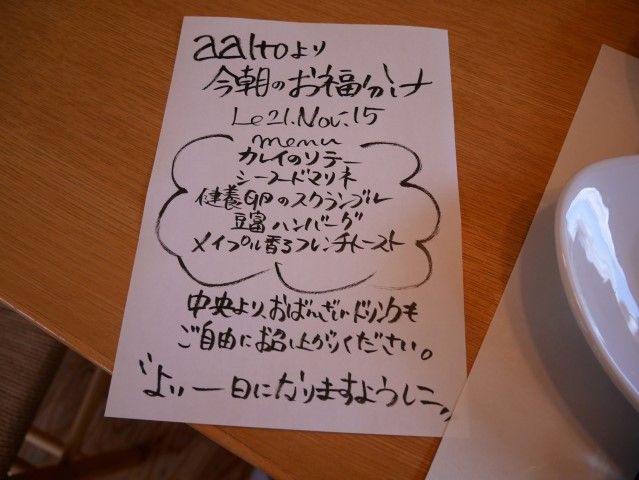 aaltoより
今朝のお福分け
Le 21.Nov.15
menu
カレイのソテー
シーフードマリネ
健養卵のスクランブル
豆富ハンバーグ
メイプル香るフレンチトースト
中央より、おばんざい、ドリンクも
ご自由にお召し上がりください。
"よい一日になりますように"